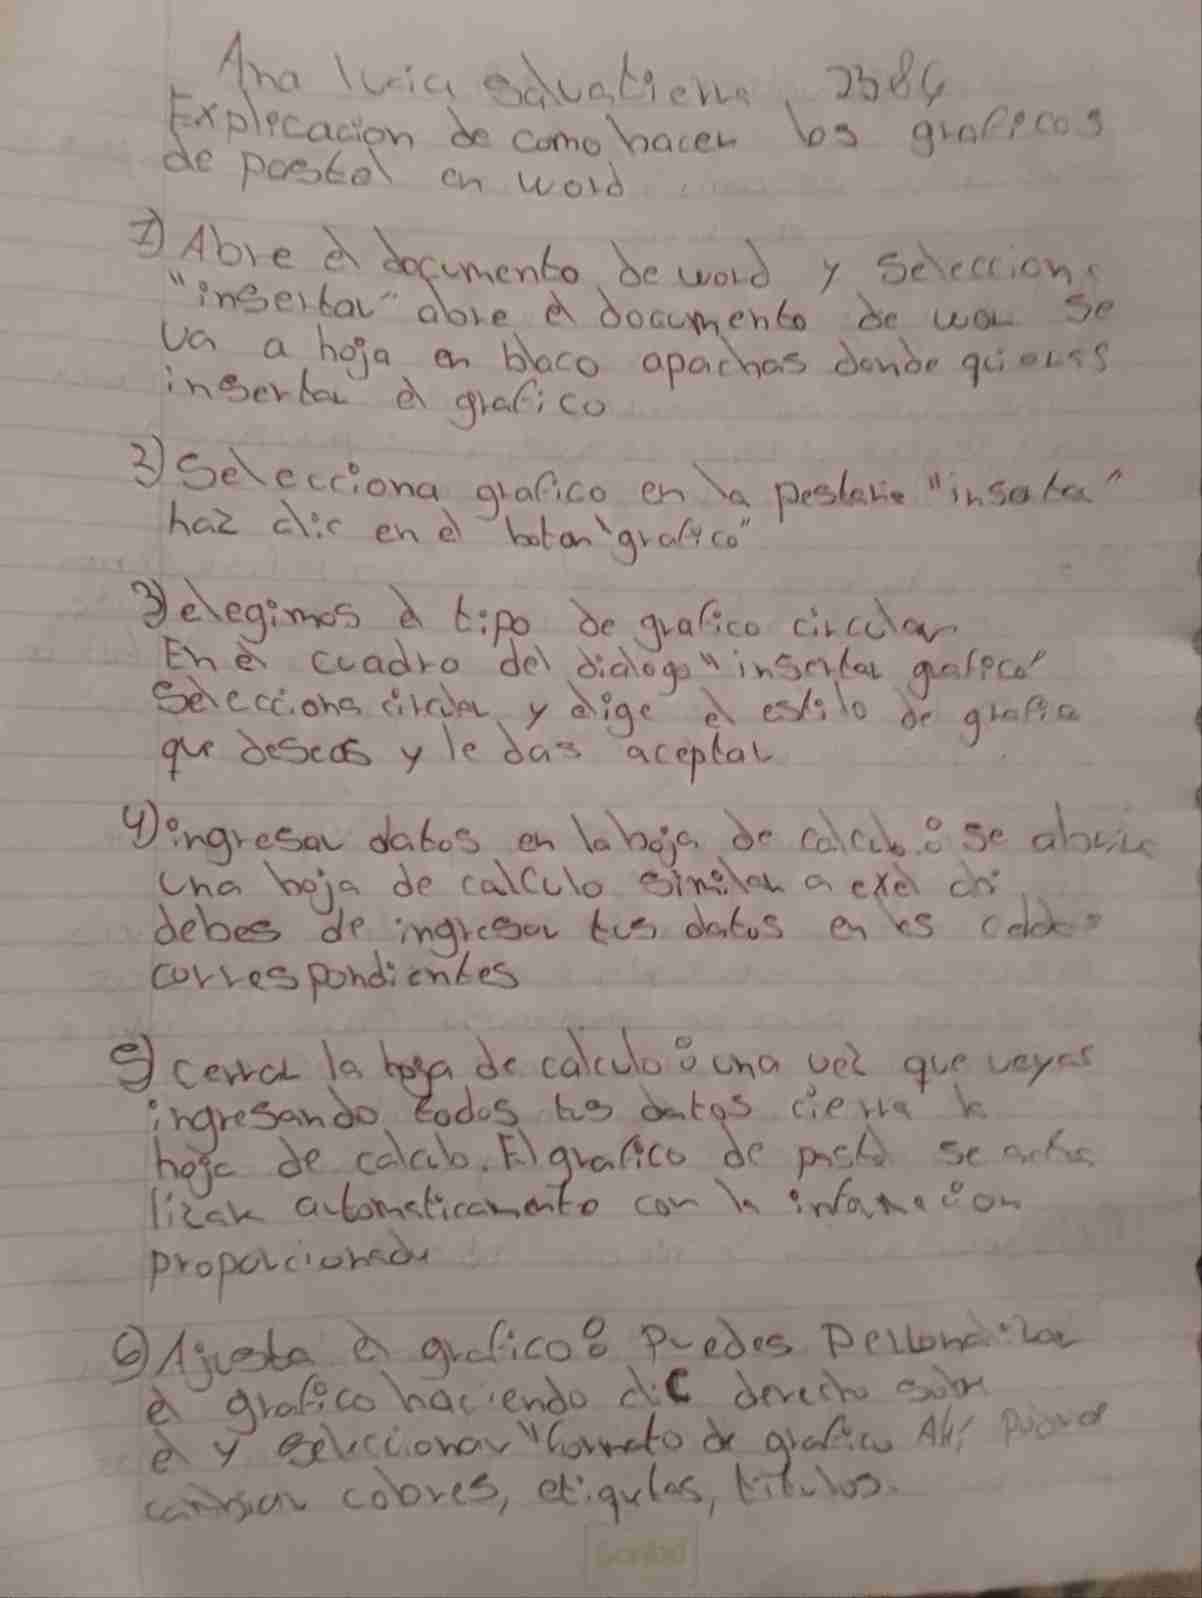 Ana lucia salvatierra 2384
Explicacion de como hacer los graficos
de pastel en word
1) Abre el documento de word y Selecciona
"insertar" abre el documento de wor se
va a hoja en blaco apachas donde quieres
insertar el grafico
2) Selecciona grafico en la pestaña "inserta"
haz clic en el boton "grafico"
3) elegimos el tipo de grafico circular
En el cuadro del dialogo "insertar grafico"
Selecciona circular y elige el estilo de grafica
que deseas y le das aceptar
4) ingresar datos en la hoja de calculo: se abrira
una hoja de calculo similar a exel ahi
debes de ingresar tus datos en las celdas
correspondientes
5) cerrar la hoja de calculo: una vez que veyas
ingresando todos tus datos cierra la
hoja de calculo. El grafico de pastel se actua
lizara automaticamente con la informacion
proporcionada
6) Ajusta el grafico: Puedes Personalizar
el grafico haciendo clic derecho sobre
el y seleccionar "formato de grafico Ahi Puedes
cambiar colores, etiqutas, titulos.